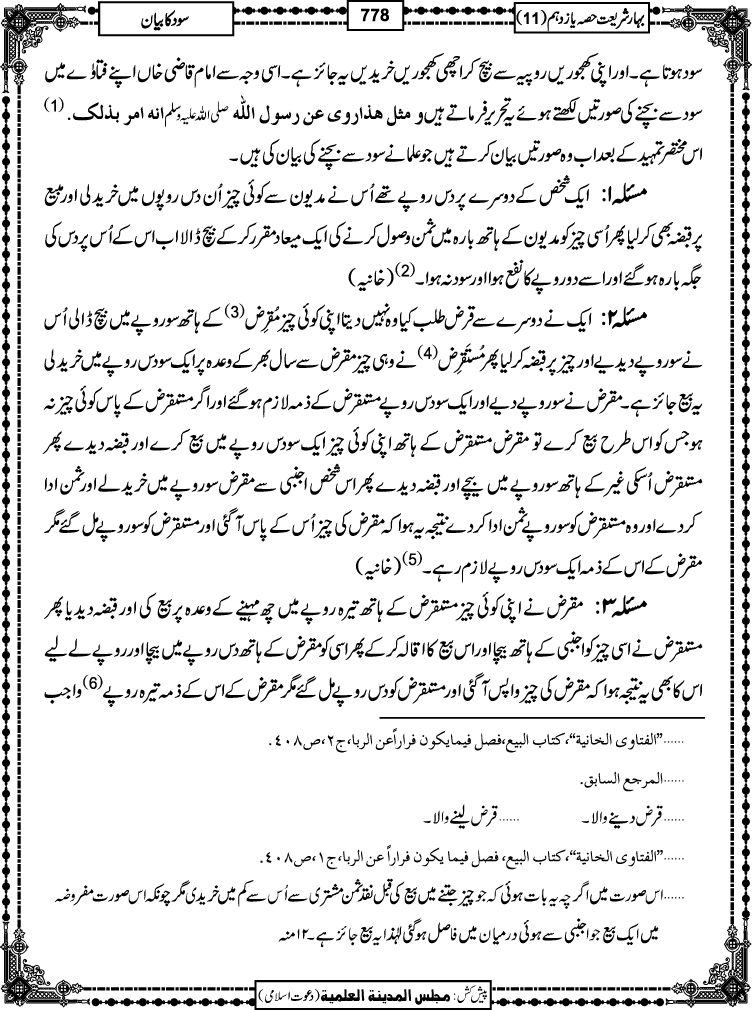 بہارشریعت حصہ یازدہم (11)
778
سود کا بیان
سود ہوتا ہے۔ اور اپنی کھجوریں روپیہ سے بیچ کر اچھی کھجوریں خریدیں یہ جائز ہے۔ اسی وجہ سے امام قاضی خاں اپنے فتاوٰے میں
سود سے بچنے کی صورتیں لکھتے ہوئے یہ تحریر فرماتے ہیں و مثل ھذا روی عن رسول اللّٰہ صلی اللہ علیہ وسلم انه امر بذلک . (1)
اس مختصر تمہید کے بعد اب وہ صورتیں بیان کرتے ہیں جو علما نے سود سے بچنے کی بیان کی ہیں۔
مسئلہ ۱: ایک شخص کے دوسرے پر دس روپے تھے اُس نے مدیون سے کوئی چیز اُن دس روپوں میں خرید لی اور مبیع
پر قبضہ بھی کرلیا پھر اُسی چیز کو مدیون کے ہاتھ بارہ میں ثمن وصول کرنے کی ایک میعاد مقرر کرکے بیچ ڈالا اب اس کے اُس پر دس کی
جگہ بارہ ہوگئے اور اسے دو روپے کا نفع ہوا اور سود نہ ہوا۔ (2) (خانیہ)
مسئلہ ۲: ایک نے دوسرے سے قرض طلب کیا وہ نہیں دیتا اپنی کوئی چیز مُقرِض (3) کے ہاتھ سو روپے میں بیچ ڈالی اُس
نے سو روپے دیدیے اور چیز پر قبضہ کرلیا پھر مُستَقرِض (4) نے وہی چیز مقرض سے سال بھر کے وعدہ پر ایک سو دس روپے میں خرید لی
یہ بیع جائز ہے۔ مقرض نے سو روپے دیے اور ایک سو دس روپے مستقرض کے ذمہ لازم ہوگئے اور اگر مستقرض کے پاس کوئی چیز نہ
ہو جس کو اس طرح بیع کرے تو مقرض مستقرض کے ہاتھ اپنی کوئی چیز ایک سو دس روپے میں بیع کرے اور قبضہ دیدے پھر
مستقرض اُسکی غیر کے ہاتھ سو روپے میں بیچے اور قبضہ دیدے پھر اس شخص اجنبی سے مقرض سو روپے میں خرید لے اور ثمن ادا
کردے اور وہ مستقرض کو سو روپے ثمن ادا کردے نتیجہ یہ ہوا کہ مقرض کی چیز اُس کے پاس آگئی اور مستقرض کو سو روپے مل گئے مگر
مقرض کے اس کے ذمہ ایک سو دس روپے لازم رہے۔ (5) (خانیہ)
مسئلہ ۳: مقرض نے اپنی کوئی چیز مستقرض کے ہاتھ تیرہ روپے میں چھ مہینے کے وعدہ پر بیع کی اور قبضہ دیدیا پھر
مستقرض نے اسی چیز کو اجنبی کے ہاتھ بیچا اور اس بیع کا اقالہ کرکے پھر اسی کو مقرض کے ہاتھ دس روپے میں بیچا اور روپے لے لیے
اس کا بھی یہ نتیجہ ہوا کہ مقرض کی چیز واپس آگئی اور مستقرض کو دس روپے مل گئے مگر مقرض کے اس کے ذمہ تیرہ روپے (6) واجب
......"الفتاوی الخانیة"، کتاب البیع، فصل فیمایکون فراراًعن الربا، ج۲، ص۴۰۸.
......المرجع السابق.
......قرض دینے والا۔ ......قرض لینے والا۔
......"الفتاوی الخانیة"، کتاب البیع، فصل فیما یکون فراراً عن الربا، ج۱، ص۴۰۸.
......اس صورت میں اگرچہ یہ بات ہوئی کہ جو چیز جتنے میں بیع کی قبل نقد ثمن مشتری سے اُس سے کم میں خریدی مگر چونکہ اس صورت مفروضہ
میں ایک بیع جو اجنبی سے ہوئی درمیان میں فاصل ہوگئی لہٰذا یہ بیع جائز ہے۔ ۱۲ منہ
پیش کش: مجلس المدینة العلمیة (دعوت اسلامی)